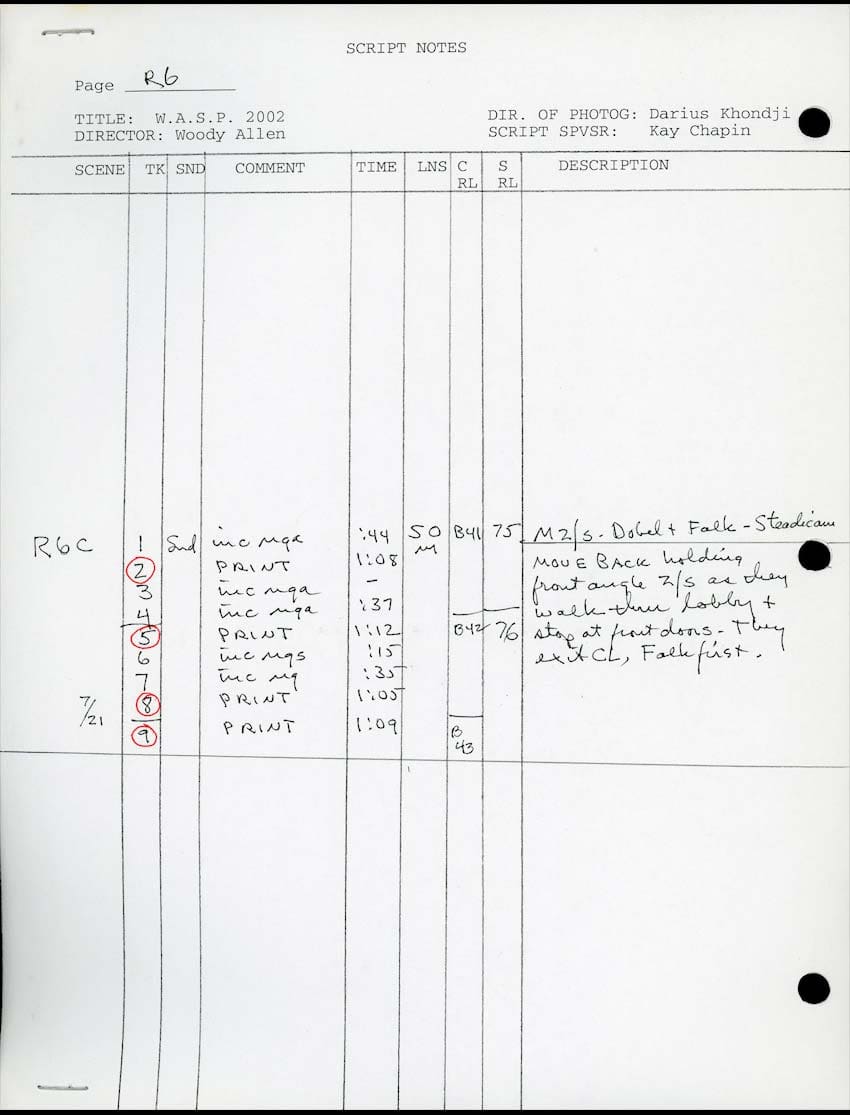 SCRIPT NOTES
Page R6
TITLE: W.A.S.P. 2002 DIR. OF PHOTOG: Darius Khondji
DIRECTOR: Woody Allen SCRIPT SPVSR: Kay Chapin
SCENE TK SND COMMENT TIME LNS C S DESCRIPTION
RL RL
R6C 1 Snd inc nga :44 50 B41 75 M2/s - Dobel + Falk - Steadicam
M
2 PRINT 1:08 MOVE BACK holding
3 inc nga - front angle 2/s as they
4 inc nga :37 walk thru lobby +
5 PRINT 1:12 B42 76 stop at front doors - They
6 inc ngs :15 exit CL, Falk first.
7 inc ng :35
7/21 8 PRINT 1:05
9 PRINT 1:09 B
43